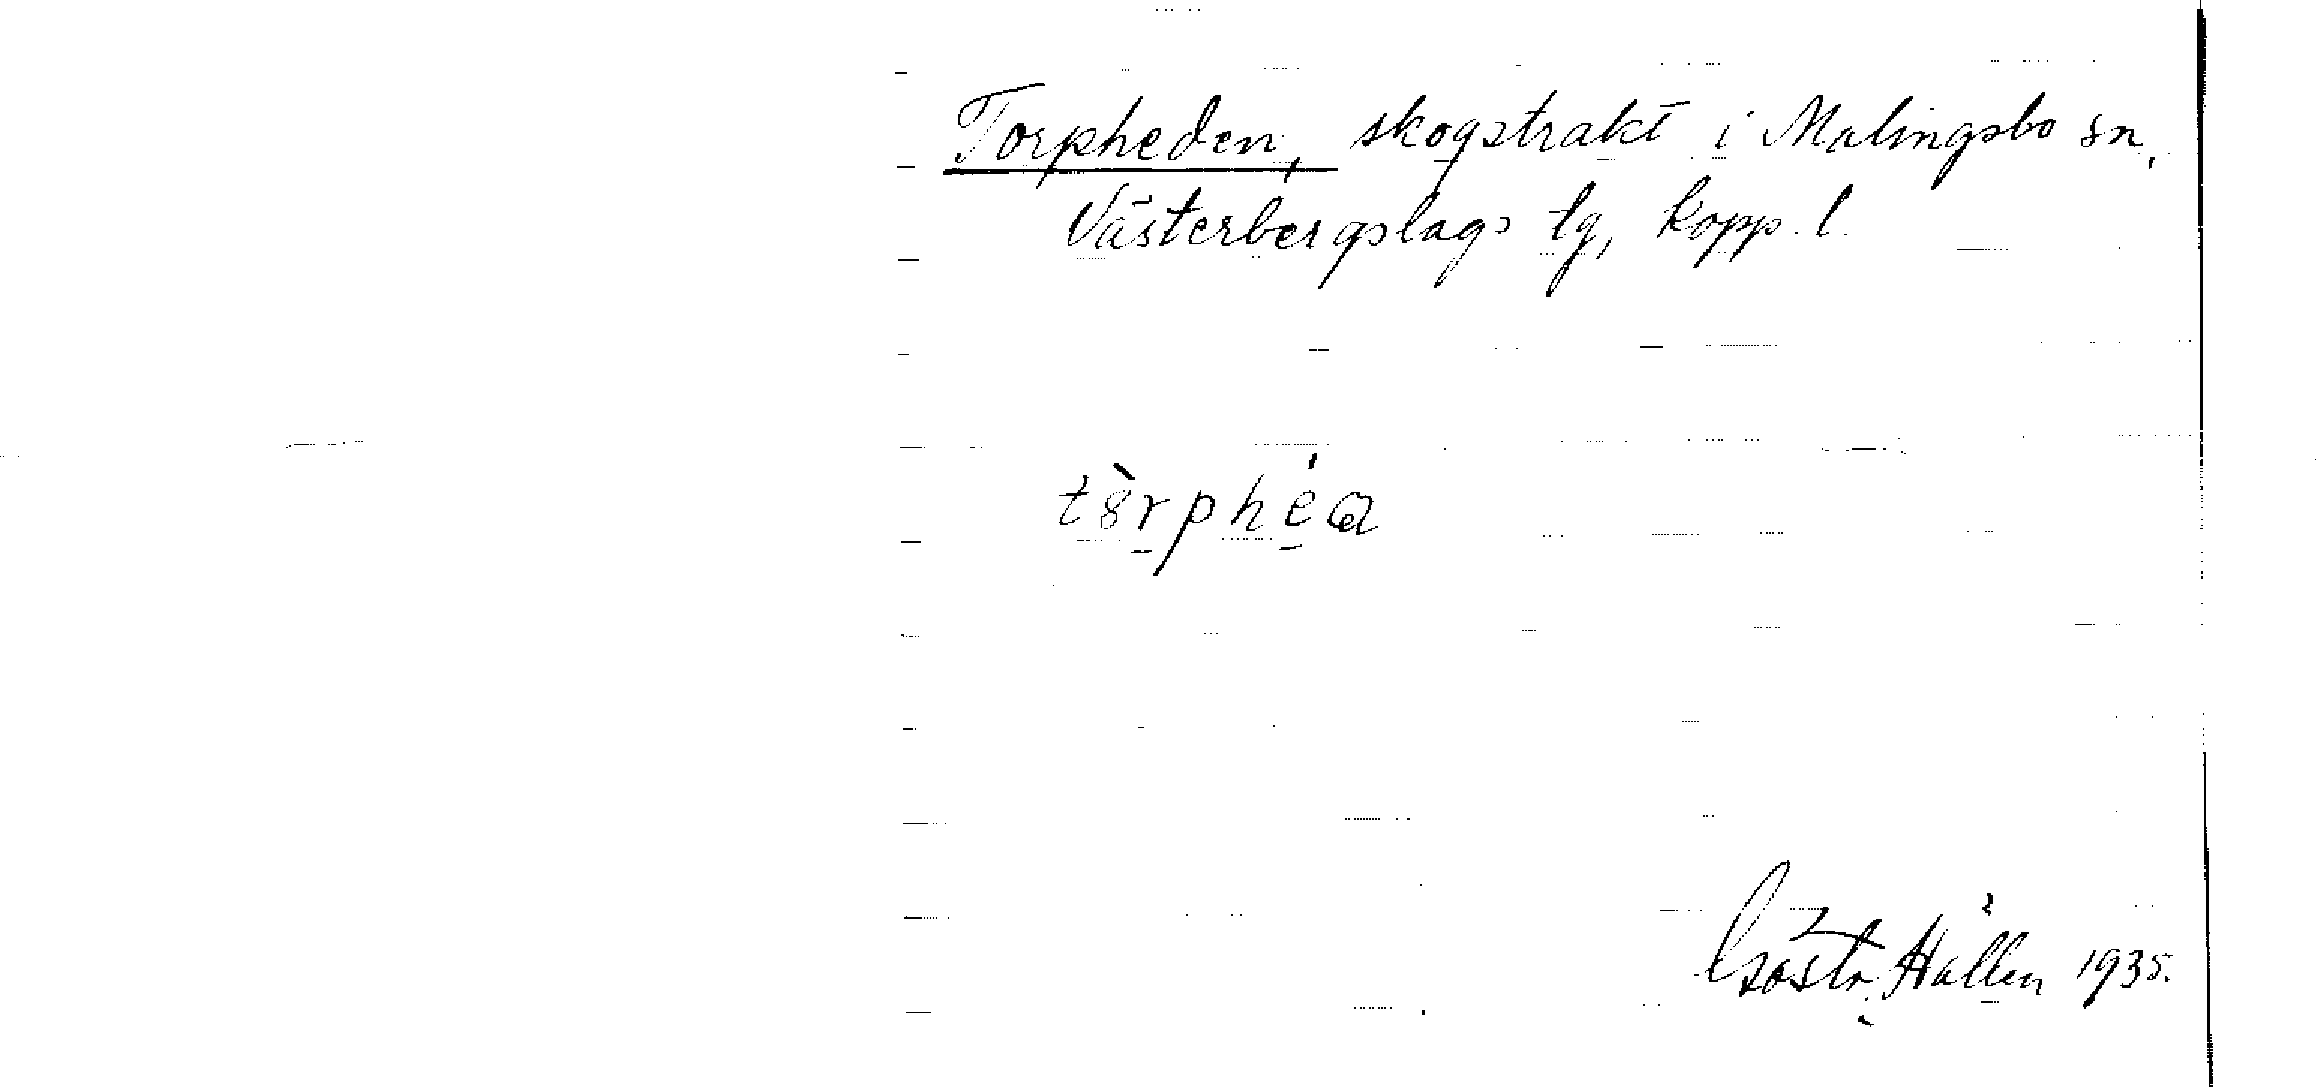 Torpheden, skogstrakt i Malingsbo sn,
Västerbergslags tg, Kopp. l.
Gösta Hallén 1935.